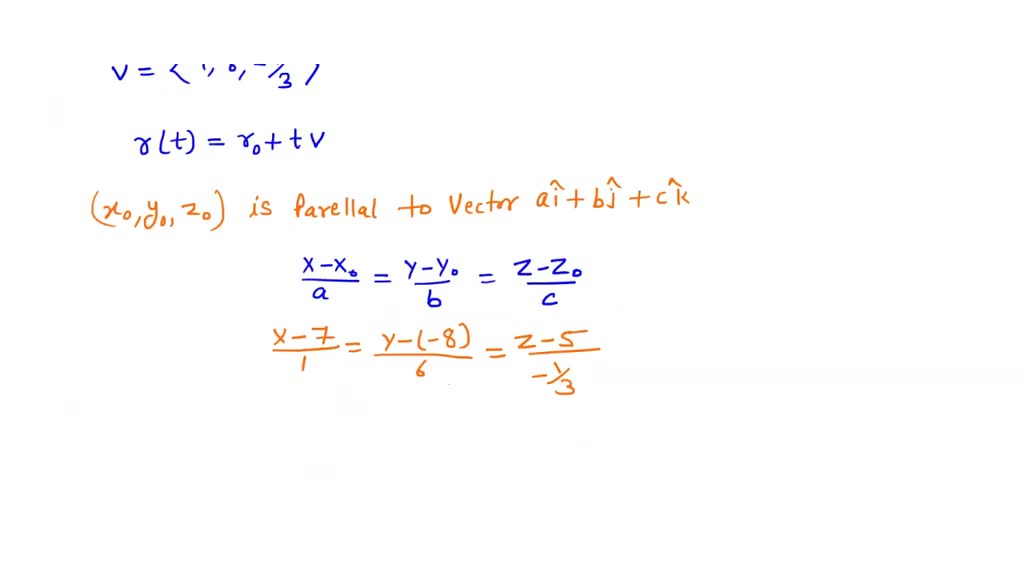 v = <
r(t) = r₀ + t v
(x₀, y₀, z₀) is Parellal to Vector aî + bĵ + ck̂
x-x₀/a = y-y₀/b = z-z₀/c
x-7/1 = y-(-8)/6 = z-5/-1/3